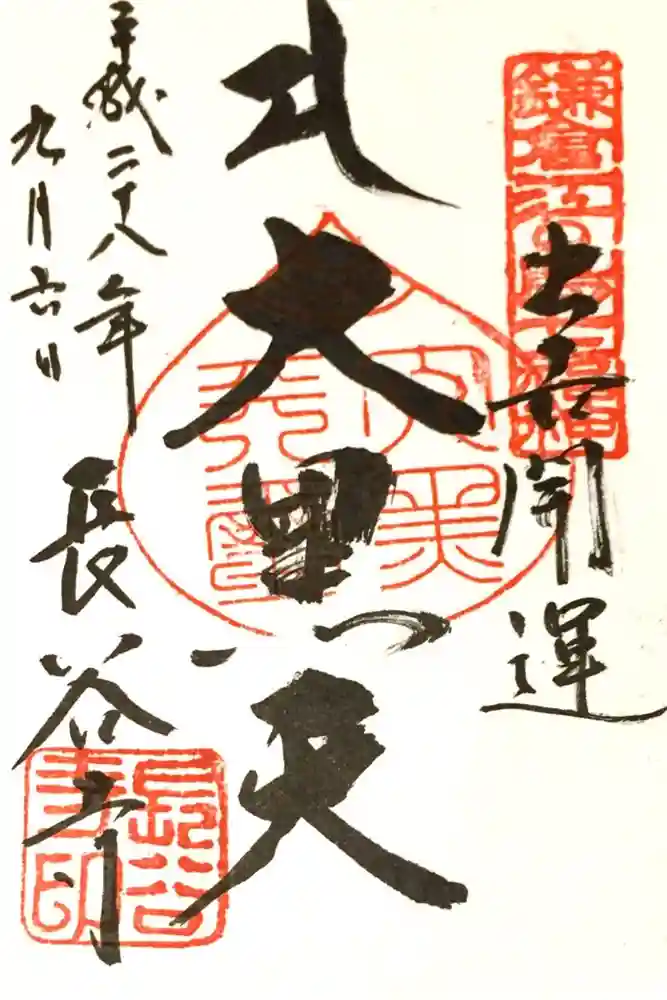 鎌倉江の島七福神
出世開運
大黒天
平成二十八年
九月六日
長谷寺
長谷寺印